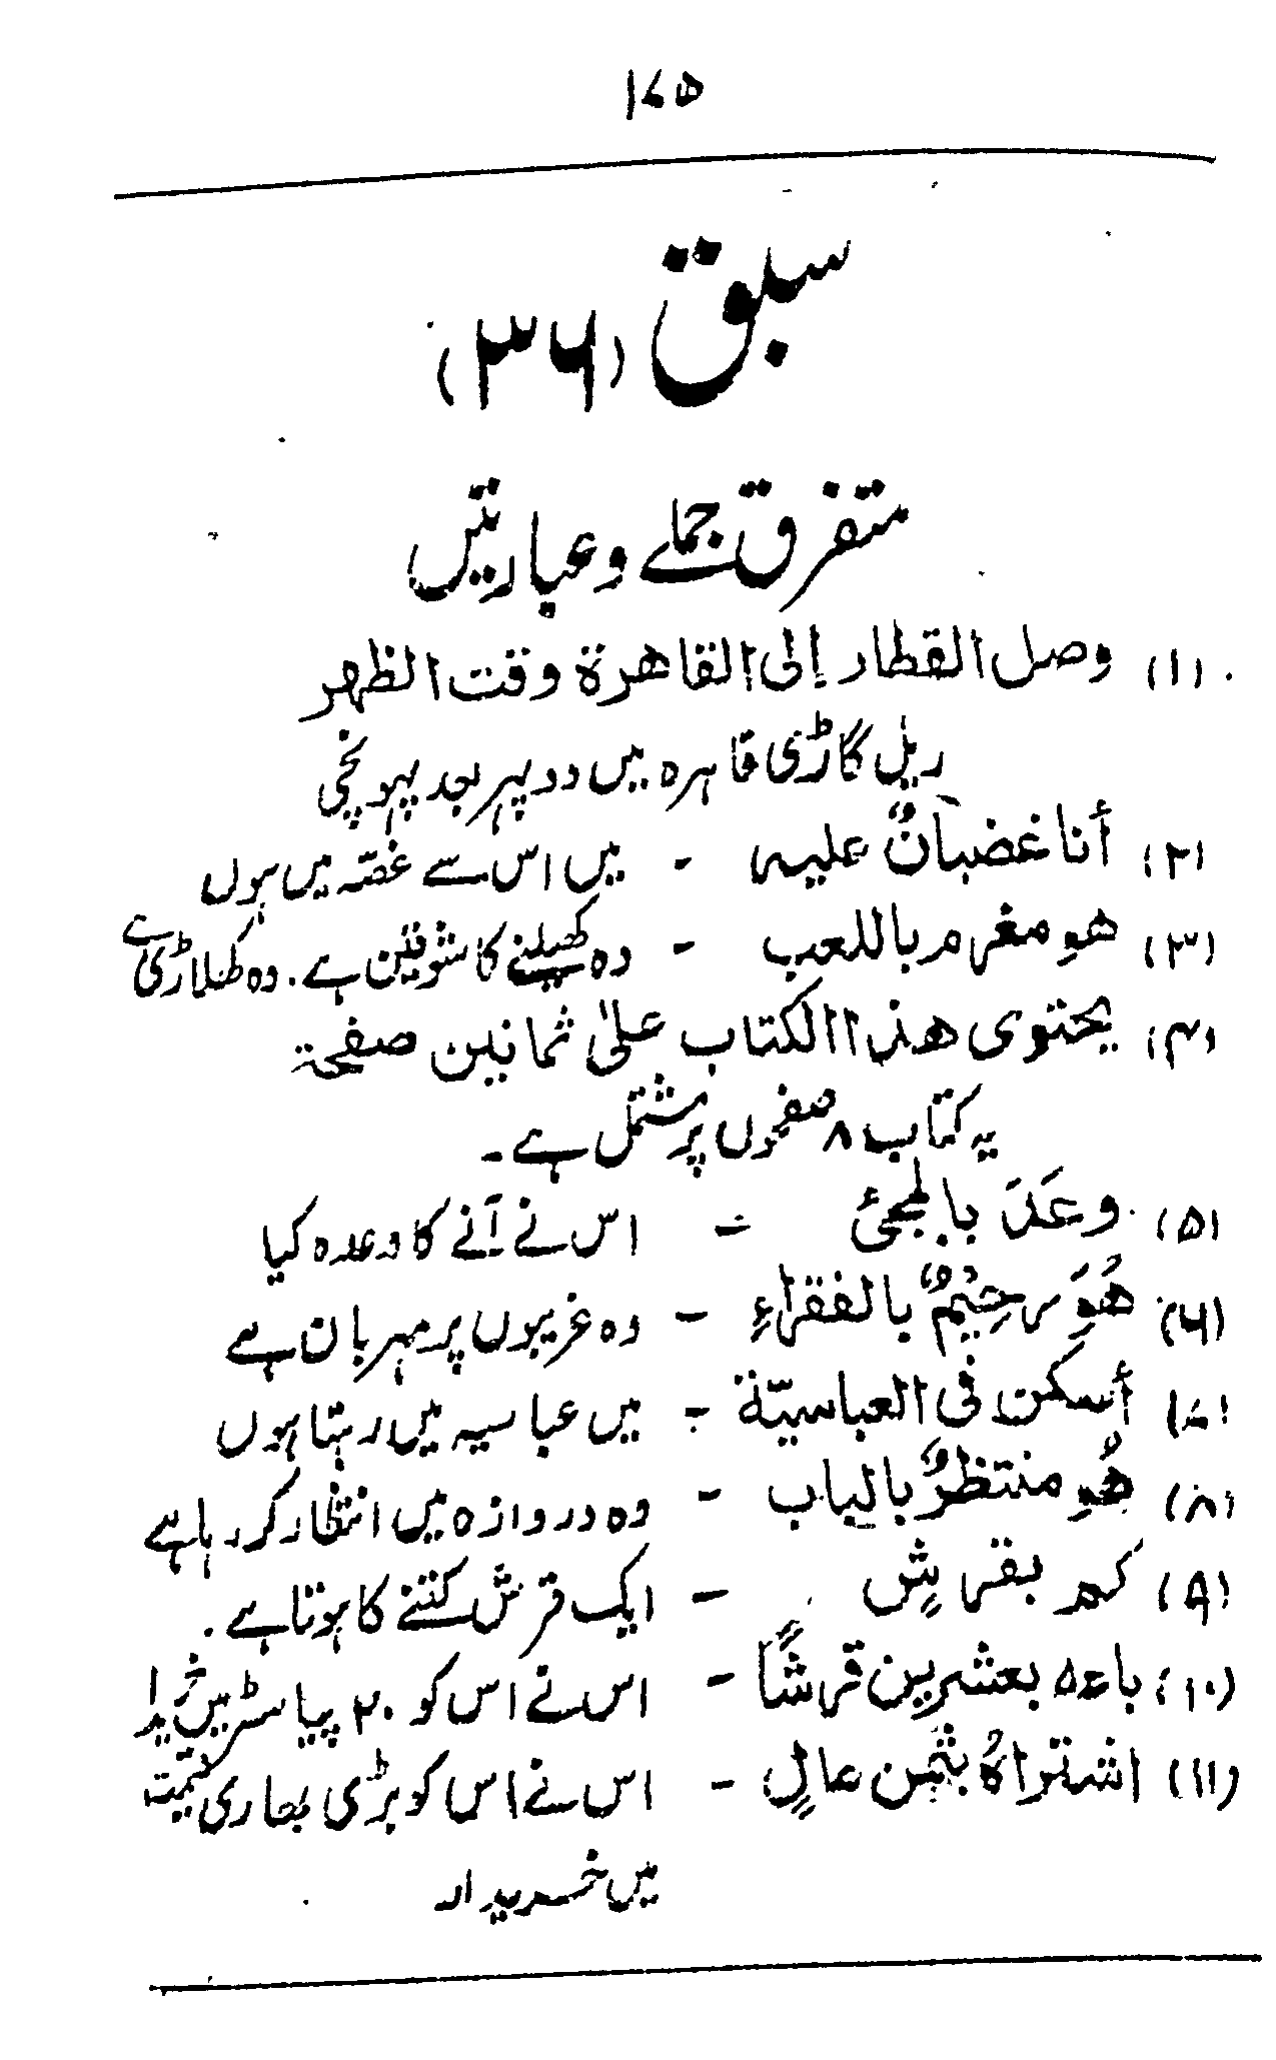 ۱۷۵
سبق (۳۶)
متفرق جملے و عبارتیں
(۱) وصل القطار إلى القاهرة وقت الظهر
ریل گاڑی قاہرہ میں دوپہر بعد پہونچی
(۲) أنا غضبانٌ عليه - میں اس سے غصّہ میں ہوں
(۳) هو مغرم باللعب - وہ کھیلنے کا شوقین ہے. وہ کھلاڑی ہے
(۴) يحتوى هذا الكتاب على ثمانين صفحة
یہ کتاب ۸ صفحوں پر مشتمل ہے -
(۵) وعَدَ بالمجئ - اس نے آنے کا وعدہ کیا
(۶) هُوَ رحِيْمٌ بالفقراءِ - وہ غریبوں پر مہربان ہے
(۷) أسكن فى العباسيّة - میں عباسیہ میں رہتا ہوں
(۸) هُو منتظرٌ بالباب - وہ دروازہ میں انتظار کر رہا ہے
(۹) كم بقرشٍ - ایک قرش کتنے کا ہوتا ہے.
(۱۰) باعه بعشرين قرشاً - اس نے اس کو ۲۰ پیاسٹر میں خریدا
(۱۱) اشتراهُ بثمن عالٍ - اس نے اس کو بڑی بھاری قیمت
میں خریدا۔